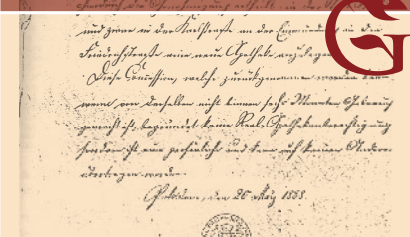 und zwar in der Karlstraße an der Einmündung in die
Friedrichstraße eine neue Apotheke anzulegen.
Diese Concession, welche zurückgenommen werden kann,
wenn von derselben nicht binnen sechs Monaten Gebrauch
gemacht ist, begründet keine Real-Apothekenberechtigung
sondern ist eine persönliche und kann auf keinen Andern
übertragen werden.
den 26 März 1858.
G